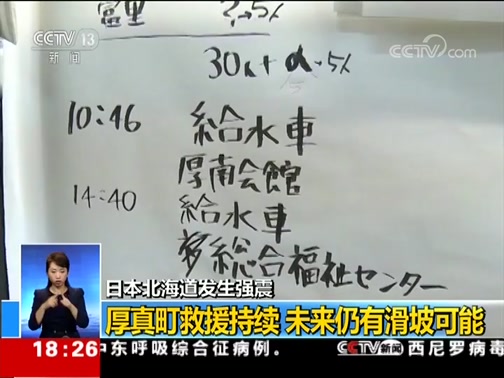 CCTV 13
新闻
CCTV.com
富里
10:46 給水車
厚南会館
14:40 給水車
総合福祉センター
日本北海道发生强震
厚真町救援持续 未来仍有滑坡可能
18:26 中东呼吸综合征病例。 CCTV新闻 西尼罗病毒